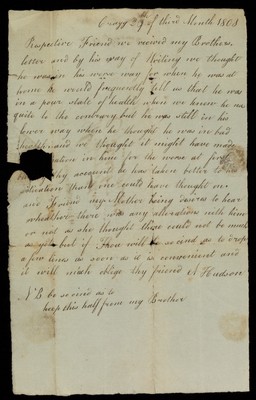 29th of third Month 1808
Respective Friend we received my Brothers
letter and by his way of Writing we thought
he was in his worse way for when he was at
home he would frequently tell us that he was
in a poor state of health when we knew he was
quite to the contrary but he was still in his
way when he thought he was in bad
health and we thought it might have made
alteration in him for the worse at first
but by thy account he has taken better to
than we could have thought on
and I found my Mother being desirous to hear
whether there was any alteration with him
or not as she thought there could not be much
as yet but if Thou will be so kind as to drop
a few lines as soon as it is convenient and
it will much oblige thy friend N Hudson
N B be so kind as to
keep this half from my Brother